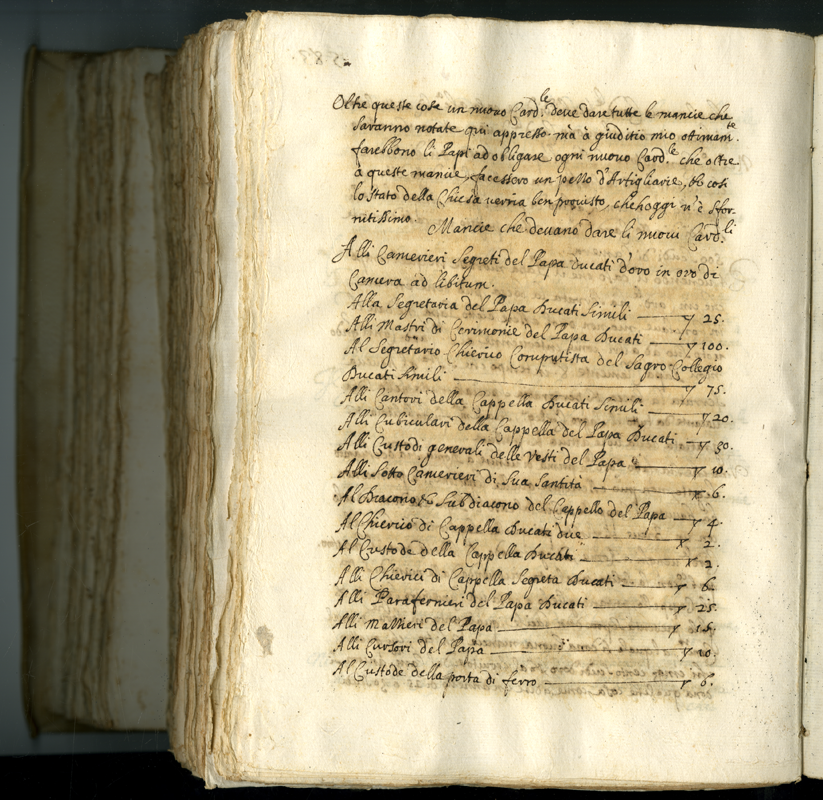 Oltre queste cose un nuovo Card.le deve dare tutte le mancie che
saranno notate qui appresso. ma à giuditio mio ottimam.te
farebbono li Papi ad obligare ogni nuovo Card.le che oltre
à queste mancie facessero un pezzo d'Artigliarie, che così
lo stato della Chiesa verria ben provisto, che hoggi n'è sfor-
nitissimo.
Mancie che devano dare li nuovi Card.li
Alli Camerieri Segreti del Papa Ducati d'oro in oro di
Camera ad libitum.
Alla Segretaria del Papa Ducati simili 25.
Alli Mastri di Cerimonie del Papa Ducati 100.
Al Segretario Chierico Computista del Sagro Collegio
Ducati simili 75.
Alli Cantori della Cappella Ducati simili 20.
Alli Cubiculari della Cappella del Papa Ducati 30.
Alli Custodi generali delle vesti del Papa 10.
Alli Sotto Camerieri di Sua Santità 6.
Al Diacono & Subdiacono del Cappello del Papa 4.
Al Chierico di Cappella Ducati due 2.
Al Custode della Cappella Ducati 2.
Alli Chierici di Cappella Segreta Ducati 6.
Alli Parafernieri del Papa Ducati 25.
Alli Mazzieri del Papa 15.
Alli Cursori del Papa 10.
Al Custode della porta di ferro 6.